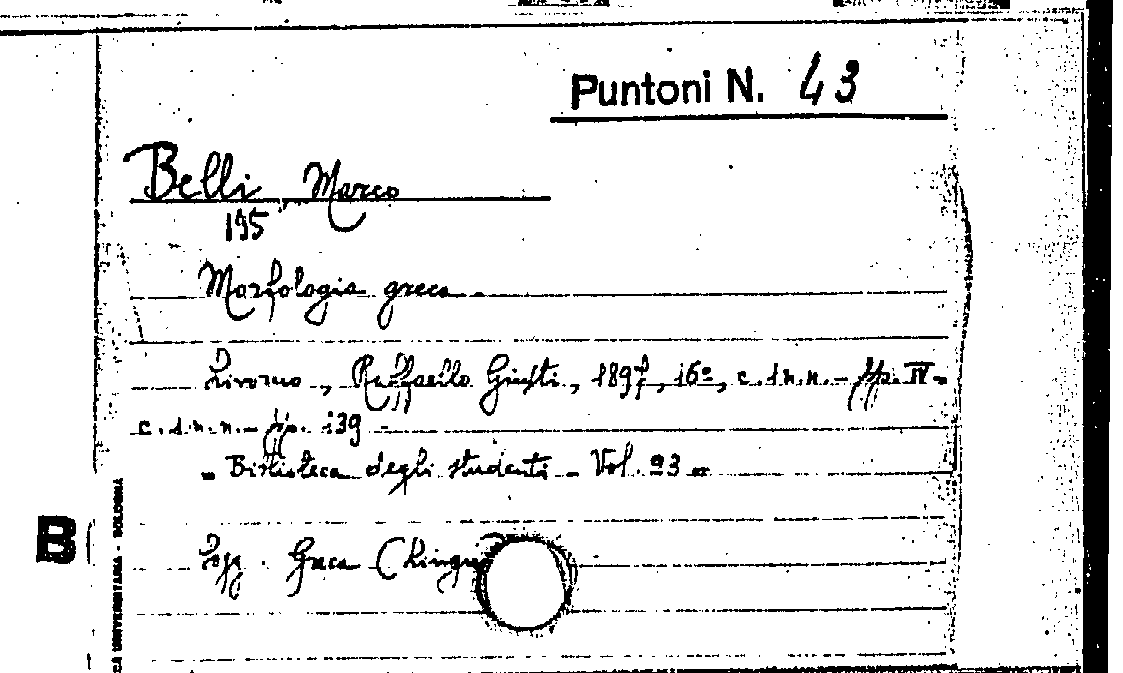 Puntoni N. 43
Belli, Marco
195
Morfologia greca -
Livorno, Raffaello Giusti, 1897, 16º, c. 1 n.n. - pp. IV -
c. 1 n.n. - pp. 139 -
- Biblioteca degli studenti - Vol. 23 -
B
Greca (Lingua
CA UNIVERSITARIA - BOLOGNA